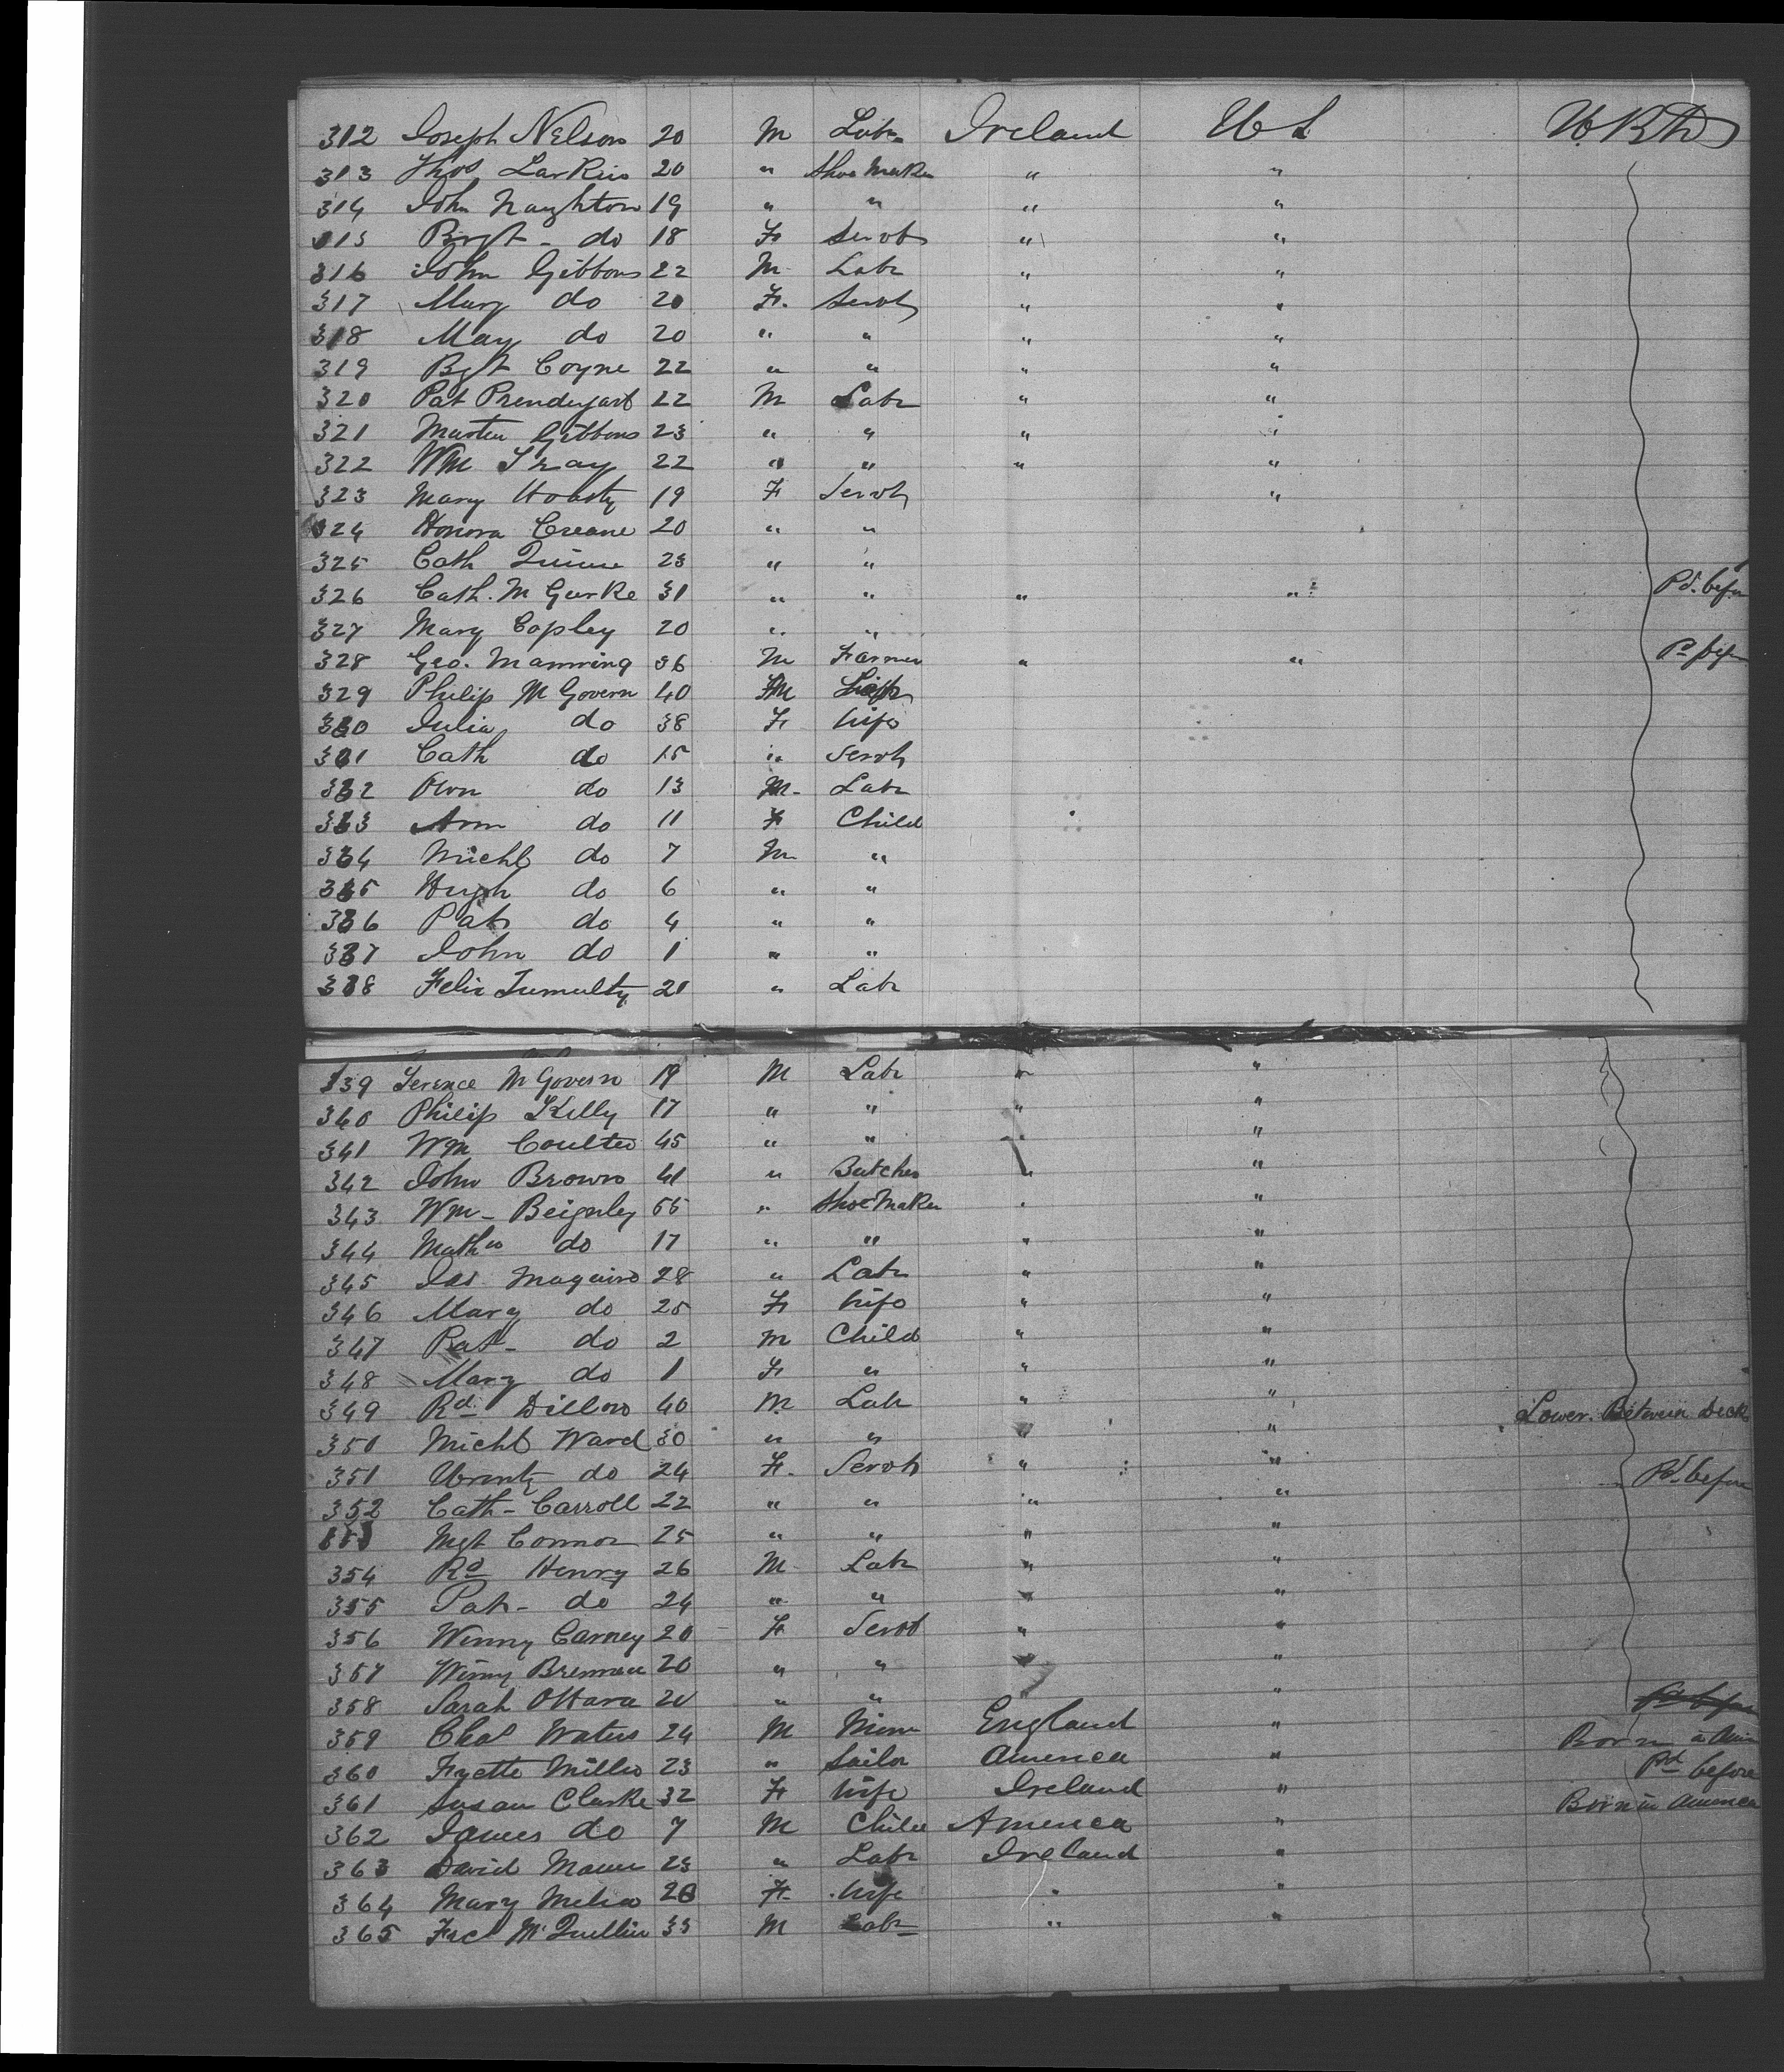 312 Joseph Nelson 20 M Labr Ireland U S
313 Thos Larkin 20 " Shoe Maker " "
314 John Naughton 19 " " " "
315 Brgt - do 18 F Servt " "
316 John Gibbons 22 M Labr " "
317 Mary do 20 F. Servt " "
318 May do 20 " " " "
319 Bgt Coyne 22 " " " "
320 Pat Prendegast 22 M Labr " "
321 Martin Gibbons 23 " " " "
322 Wm 22 " " " "
323 Mary 19 F Servt "
324 Honora Creane 20 " "
325 Cath Quinn 23 " "
326 Cath. McGurke 31 " " " " Pd. befor
327 Mary Copley 20 " "
328 Geo. Manning 36 M Farmer " "
329 Philip McGovern 40 M
330 Julia do 38 F Wife
331 Cath do 15 " Servt
332 Own do 13 M- Labr
333 Ann do 11 F Child
334 Michl do 7 M "
335 Hugh do 6 " "
336 Patr do 4 " "
337 John do 1 " "
338 Felix Tumulty 21 " Labr
339 Terence McGovern 19 M Labr " "
340 Philip Kelly 17 " " " "
341 Wm Coulter 45 " " " "
342 John Brown 41 " Butcher " "
343 Wm - Beignley 55 " Shoe Maker " "
344 Mathw do 17 " " " "
345 Jas Maguire 28 " Labr " "
346 Mary do 25 F Wife " "
347 Pat - do 2 M Child " "
348 Mary do 1 F " " "
349 Rd Dillon 40 M Labr " " Lower Between Decks
350 Michl Ward 30 " " " "
351 do 24 F. Servt " " Pd. befor
352 Cath - Carroll 22 " " " "
353 Mgt Connor 25 " " " "
354 Rd Henry 26 M Labr " "
355 Pat - do 24 " " " "
356 Winny Carney 20 F Servt " "
357 Winny Brennan 20 " " " "
358 Sarah OHara 20 " " " "
359 Chas Waters 24 M England "
360 Miller 23 " Sailor America " Born in Am
361 Susan Clarke 32 F Wife Ireland " Pd before
362 James do 7 M Child America " Born in America
363 David Mann 23 " Labr Ireland "
364 Mary 20 F- Wife " "
365 McQuillin 33 M Labr " "